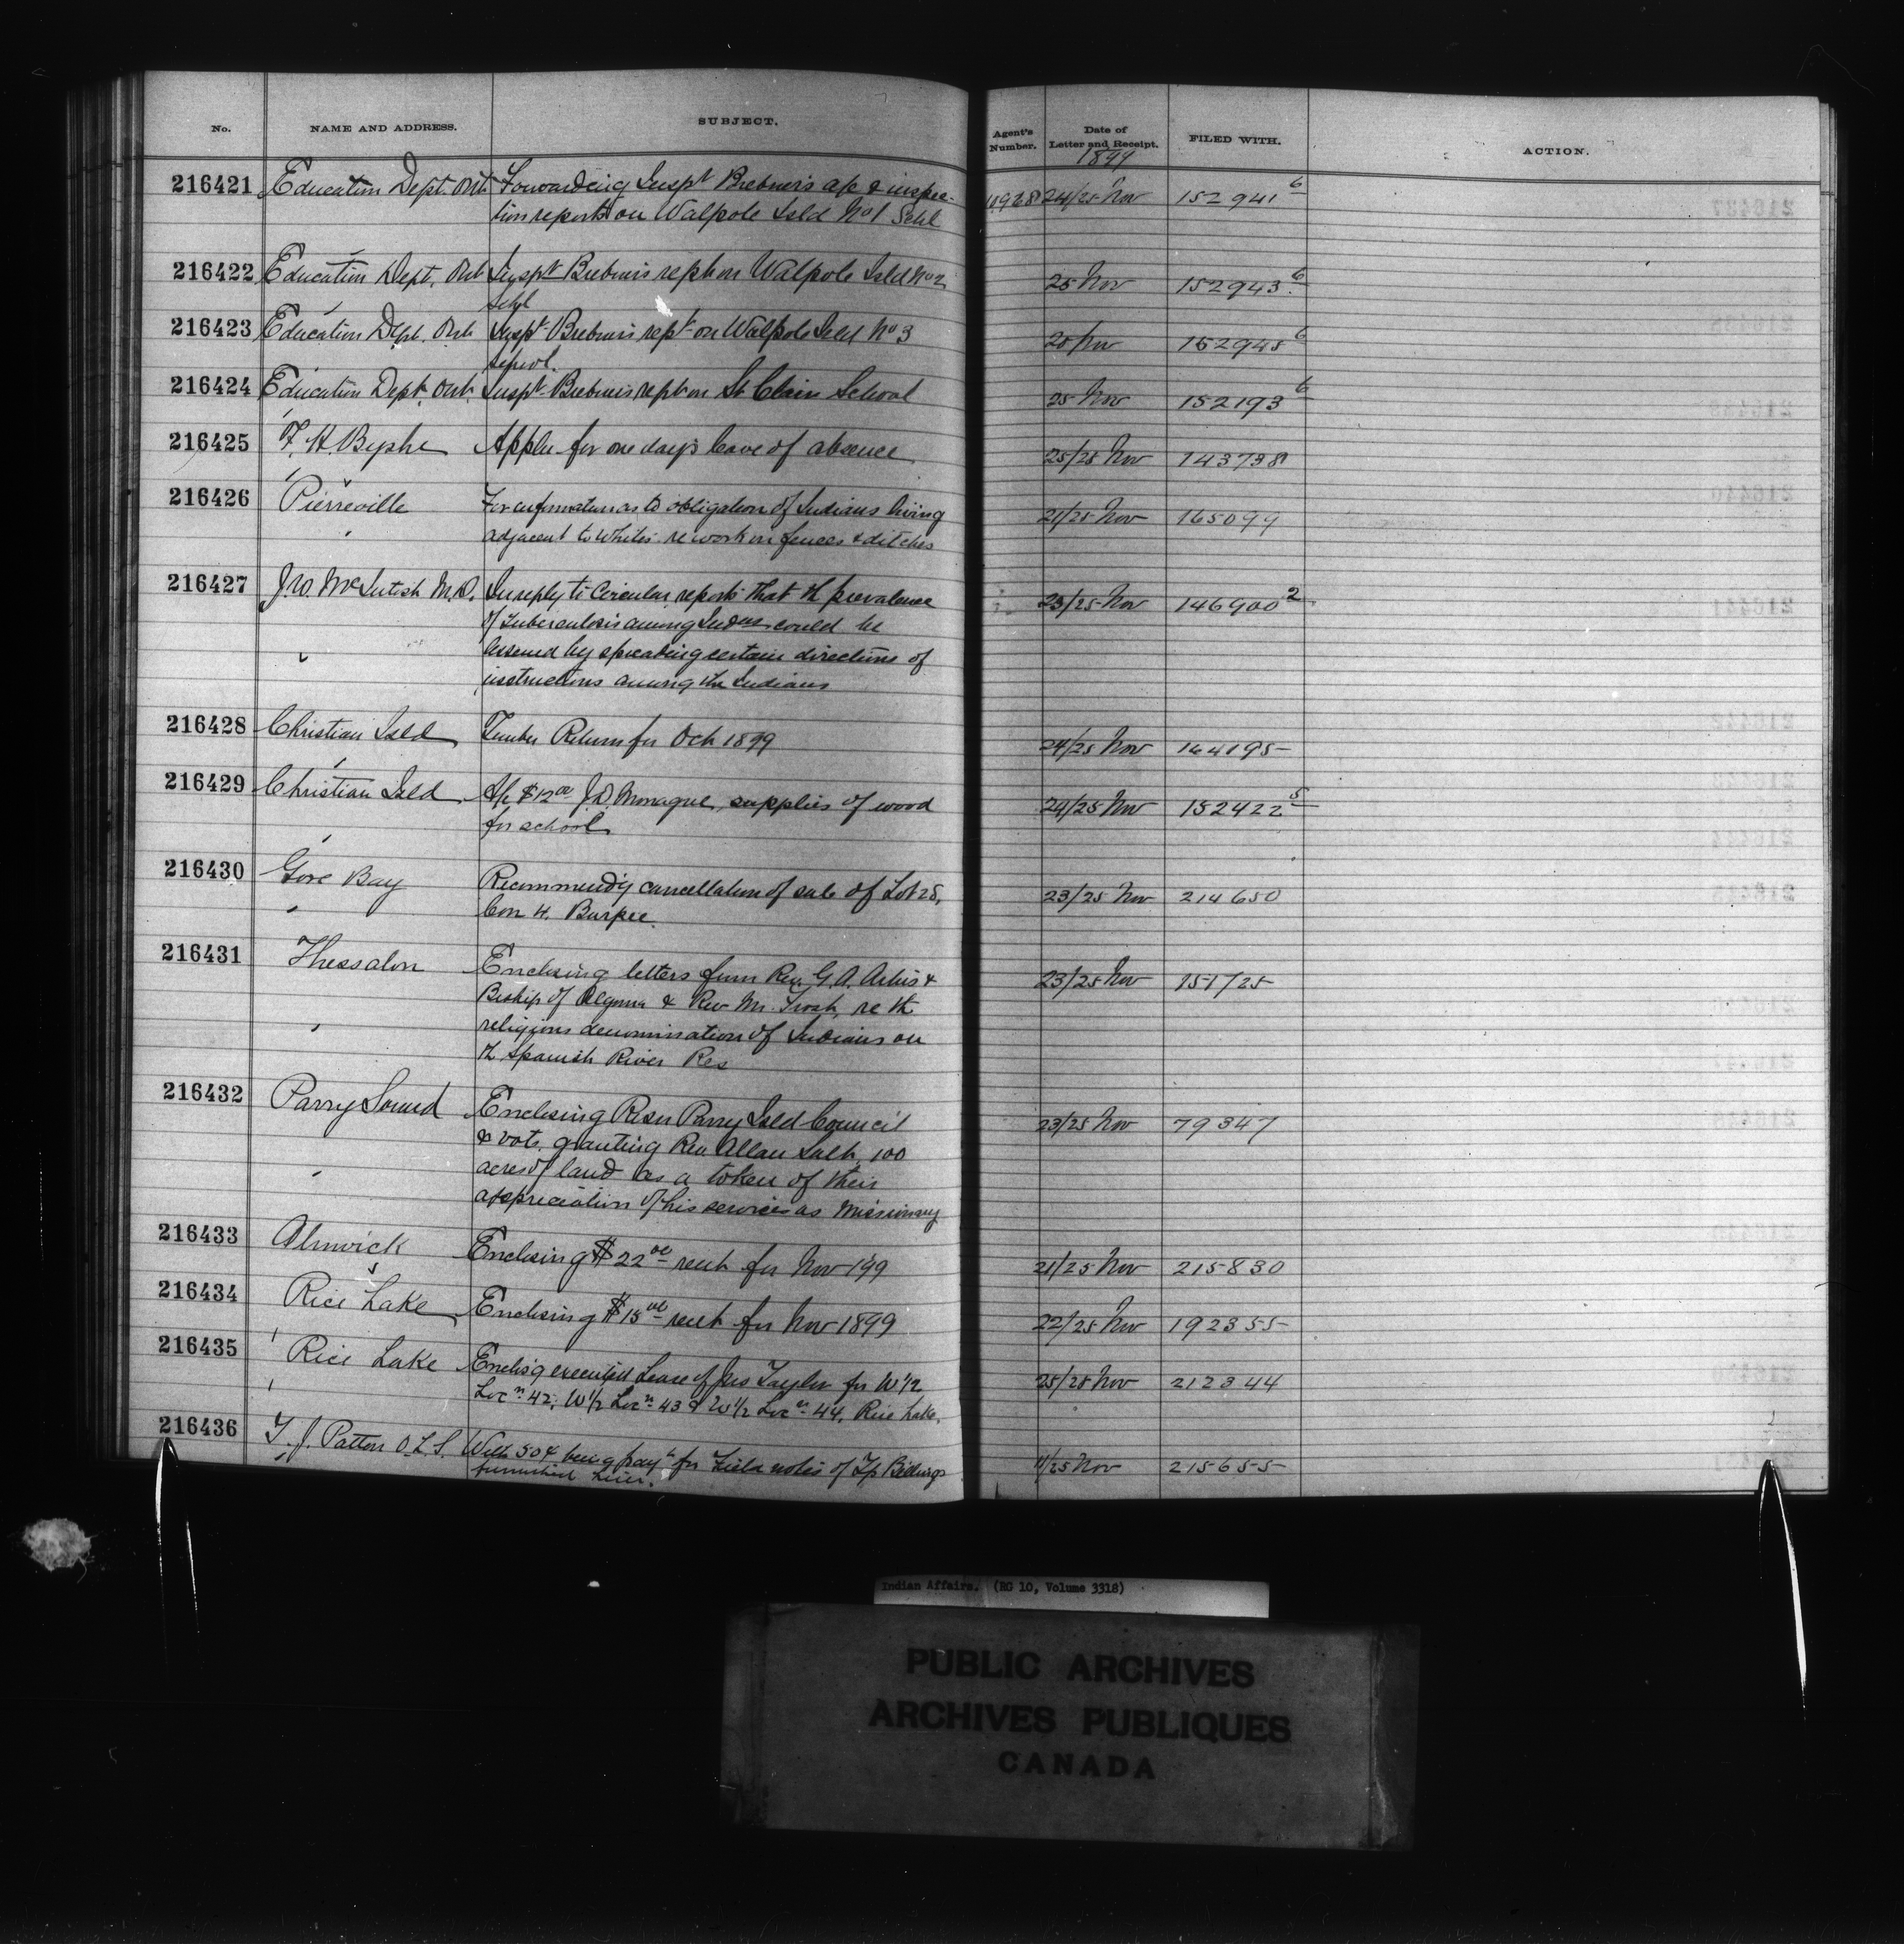 No. NAME AND ADDRESS. SUBJECT. Agent's Number. Date of Letter and Receipt. FILED WITH. ACTION.
1899
216421 Education Dept. Ont Forwarding Inspt Brebner's a/c & inspec- 10928 24/25 Nov 152941 6
tion reports on Walpole Isld No 1 Schl
216422 Education Dept. Ont Inspt Brebner's rept on Walpole Isld No 2 25 Nov 152943 6
Schl
216423 Education Dept. Ont Inspt Brebner's rept on Walpole Isld No 3 25 Nov 152945 6
School.
216424 Education Dept. Ont. Inspt Brebner's rept on St Clair School 25 Nov 152193 6
216425 F. H. Byshe Appln for one day's leave of absence 25/25 Nov 143738
216426 Pierreville For information as to obligation of Indians living 21/25 Nov 165099
adjacent to Whites re work on fences & ditches
216427 J. W. McIntosh M.D. In reply to Circular reports that th prevalence 23/25 Nov 146900 2
of Tuberculosis among Indns could be
lessened by spreading certain directions of
instructions among the Indians
216428 Christian Isld Timber Return for Oct 1899 24/25 Nov 164195
216429 Christian Isld A/c $12.00 J. D. Monague, supplies of wood 24/25 Nov 152422 5
for school
216430 Gore Bay Recommend'g cancellation of sale of Lot 28, 23/25 Nov 214650
Con 4. Burpee.
216431 Thessalon Enclosing letters from Rev. G. A. & 23/25 Nov 151725
Bishop of Algoma & Rev Mr. Frost, re th
religious denomination of Indians on
th Spanish River Res
216432 Parry Sound Enclosing Resn Parry Isld Council 23/25 Nov 79347
& vote, granting Rev Allan Salt, 100
acres of land as a token of their
appreciation of his services as Missionary
216433 Alnwick Enclosing $22.00 rent for Nov 1'99 21/25 Nov 215830
216434 Rice Lake Enclosing $15.00 rent for Nov 1899 22/25 Nov 192355
216435 Rice Lake Enclos'g executed Lease of Jas Taylor for W 1/2 25/25 Nov 212344
Locn 42, W 1/2 Locn 43 & W 1/2 Locn 44, Rice Lake.
216436 T. J. Patten O.L.S. With 50¢ being payt for Field notes of Tp Bidings 11/25 Nov 215655
furnished him.
Indian Affairs. (RG 10, Volume 3318)
PUBLIC ARCHIVES
ARCHIVES PUBLIQUES
CANADA